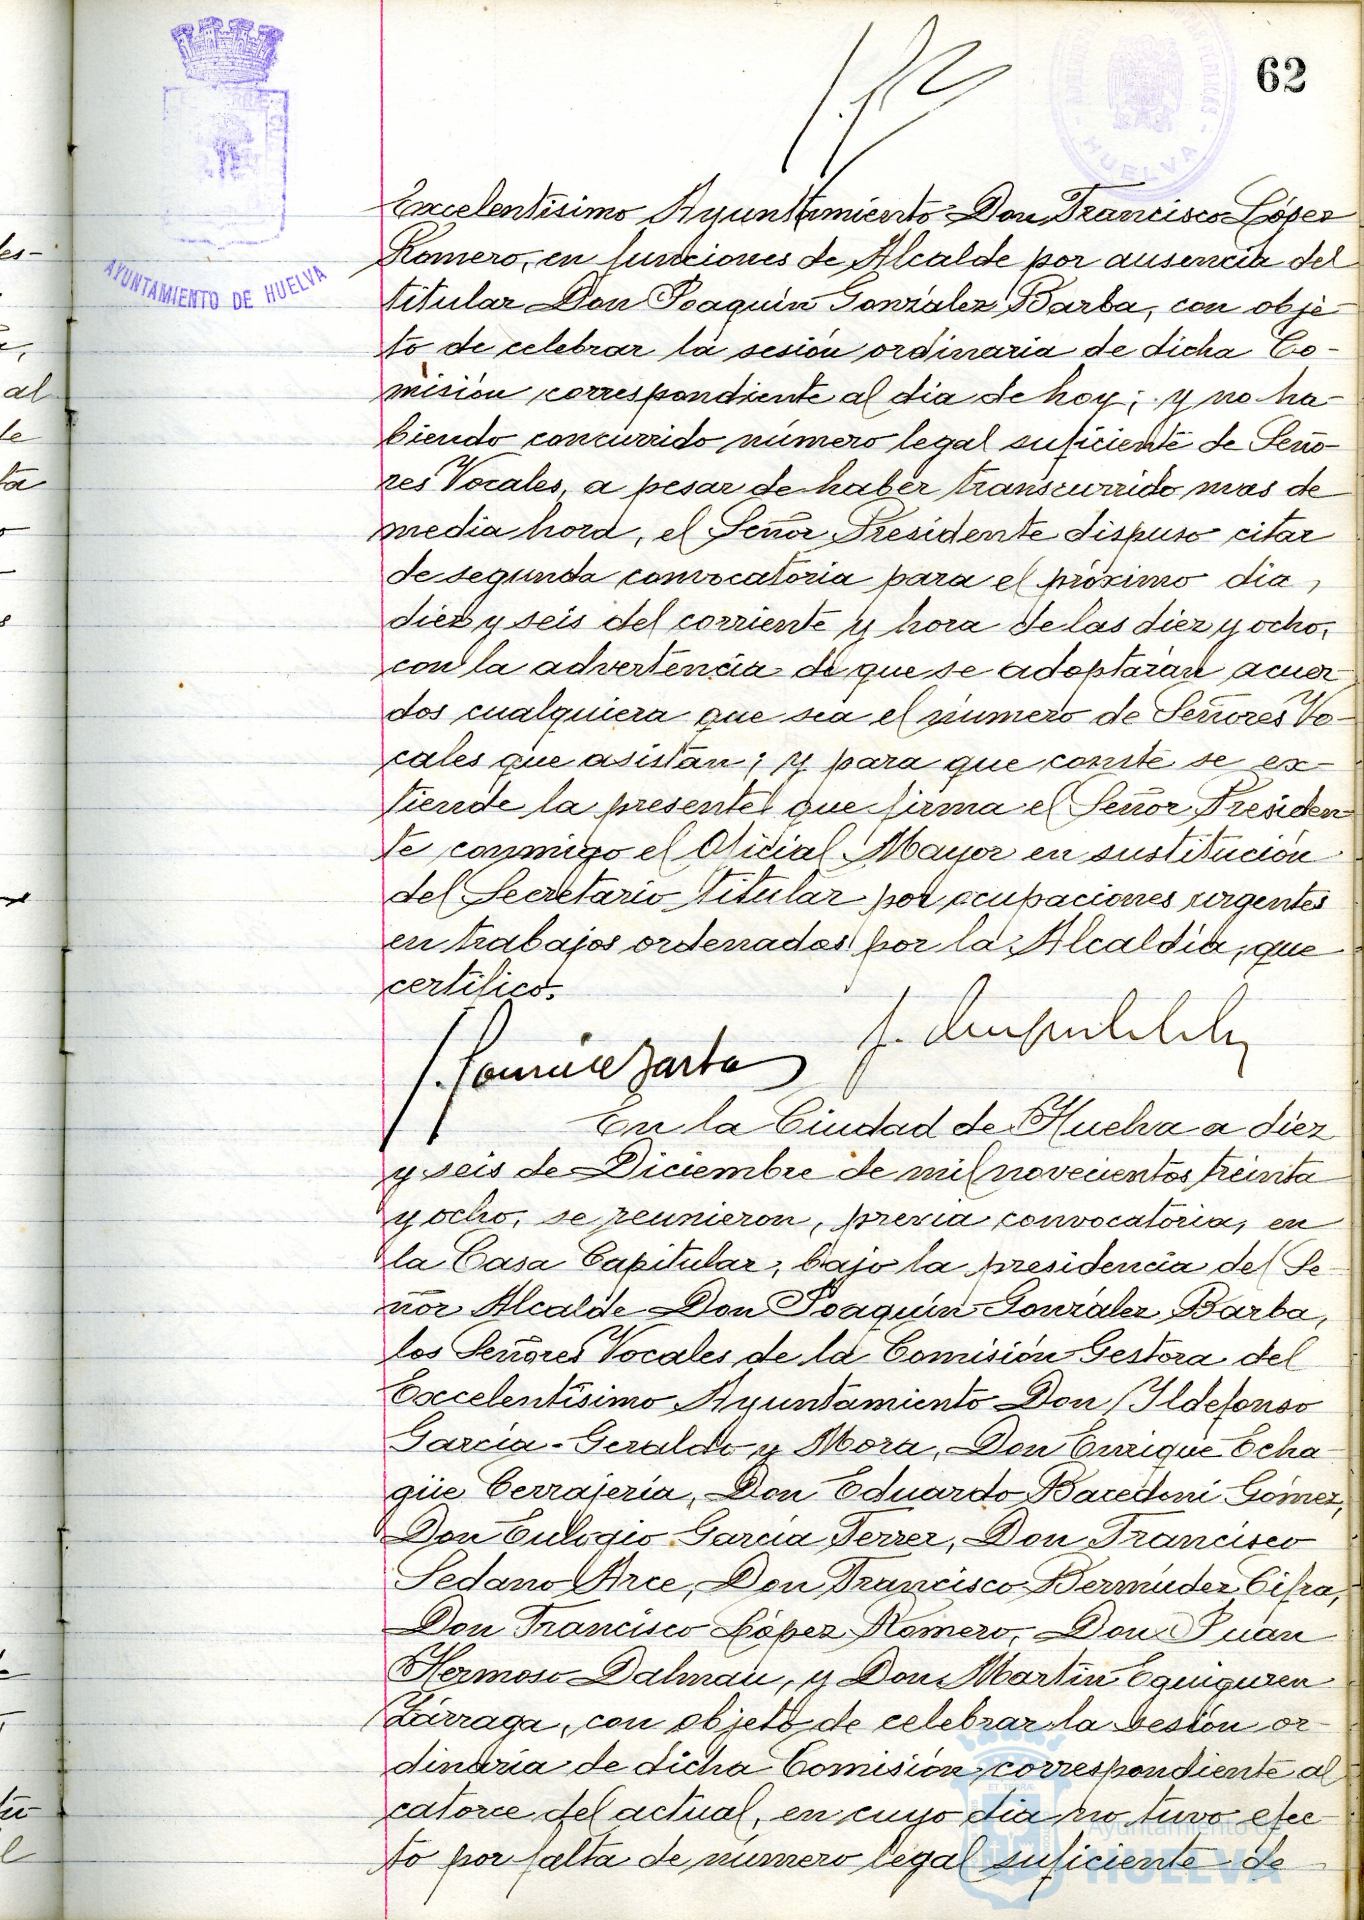 62
AYUNTAMIENTO DE HUELVA
HUELVA
Excelentisimo Ayuntamiento Don Francisco López
Romero, en funciones de Alcalde por ausencia del
titular Don Joaquín González Barba, con obje-
to de celebrar la sesión ordinaria de dicha Co-
misión correspondiente al dia de hoy; y no ha-
biendo concurrido número legal suficiente de Seño-
res Vocales, a pesar de haber transcurrido mas de
media hora, el Señor Presidente dispuso citar
de segunda convocatoria para el próximo dia,
diez y seis del corriente y hora de las diez y ocho,
con la advertencia de que se adoptarán acuer
dos cualquiera que sea el número de Señores Vo-
cales que asistan; y para que conste se ex-
tiende la presente que firma el Señor Presiden-
te conmigo el Oficial Mayor en sustitución
del Secretario titular por ocupaciones urgentes
en trabajos ordenados por la Alcaldía, que
certifico.
En la Ciudad de Huelva a diez
y seis de Diciembre de mil novecientos treinta
y ocho, se reunieron, previa convocatoria, en
la Casa Capitular, bajo la presidencia del Se-
ñor Alcalde Don Joaquín González Barba,
los Señores Vocales de la Comisión Gestora del
Excelentísimo Ayuntamiento Don Ildefonso
García-Geraldo y Mora, Don Enrique Echa-
güe Cerrajería, Don Eduardo Bacedoni Gómez,
Don Eulogio García Ferrer, Don Francisco
Sedano Arce, Don Francisco Bermúdez Cifra,
Don Francisco López Romero, Don Juan
Hermoso Dalmau, y Don Martín Eguiguren
Zárraga, con objeto de celebrar la sesión or-
dinaria de dicha Comisión correspondiente al
catorce del actual, en cuyo dia no tuvo efec-
to por falta de número legal suficiente de
Ayuntamiento de
HUELVA